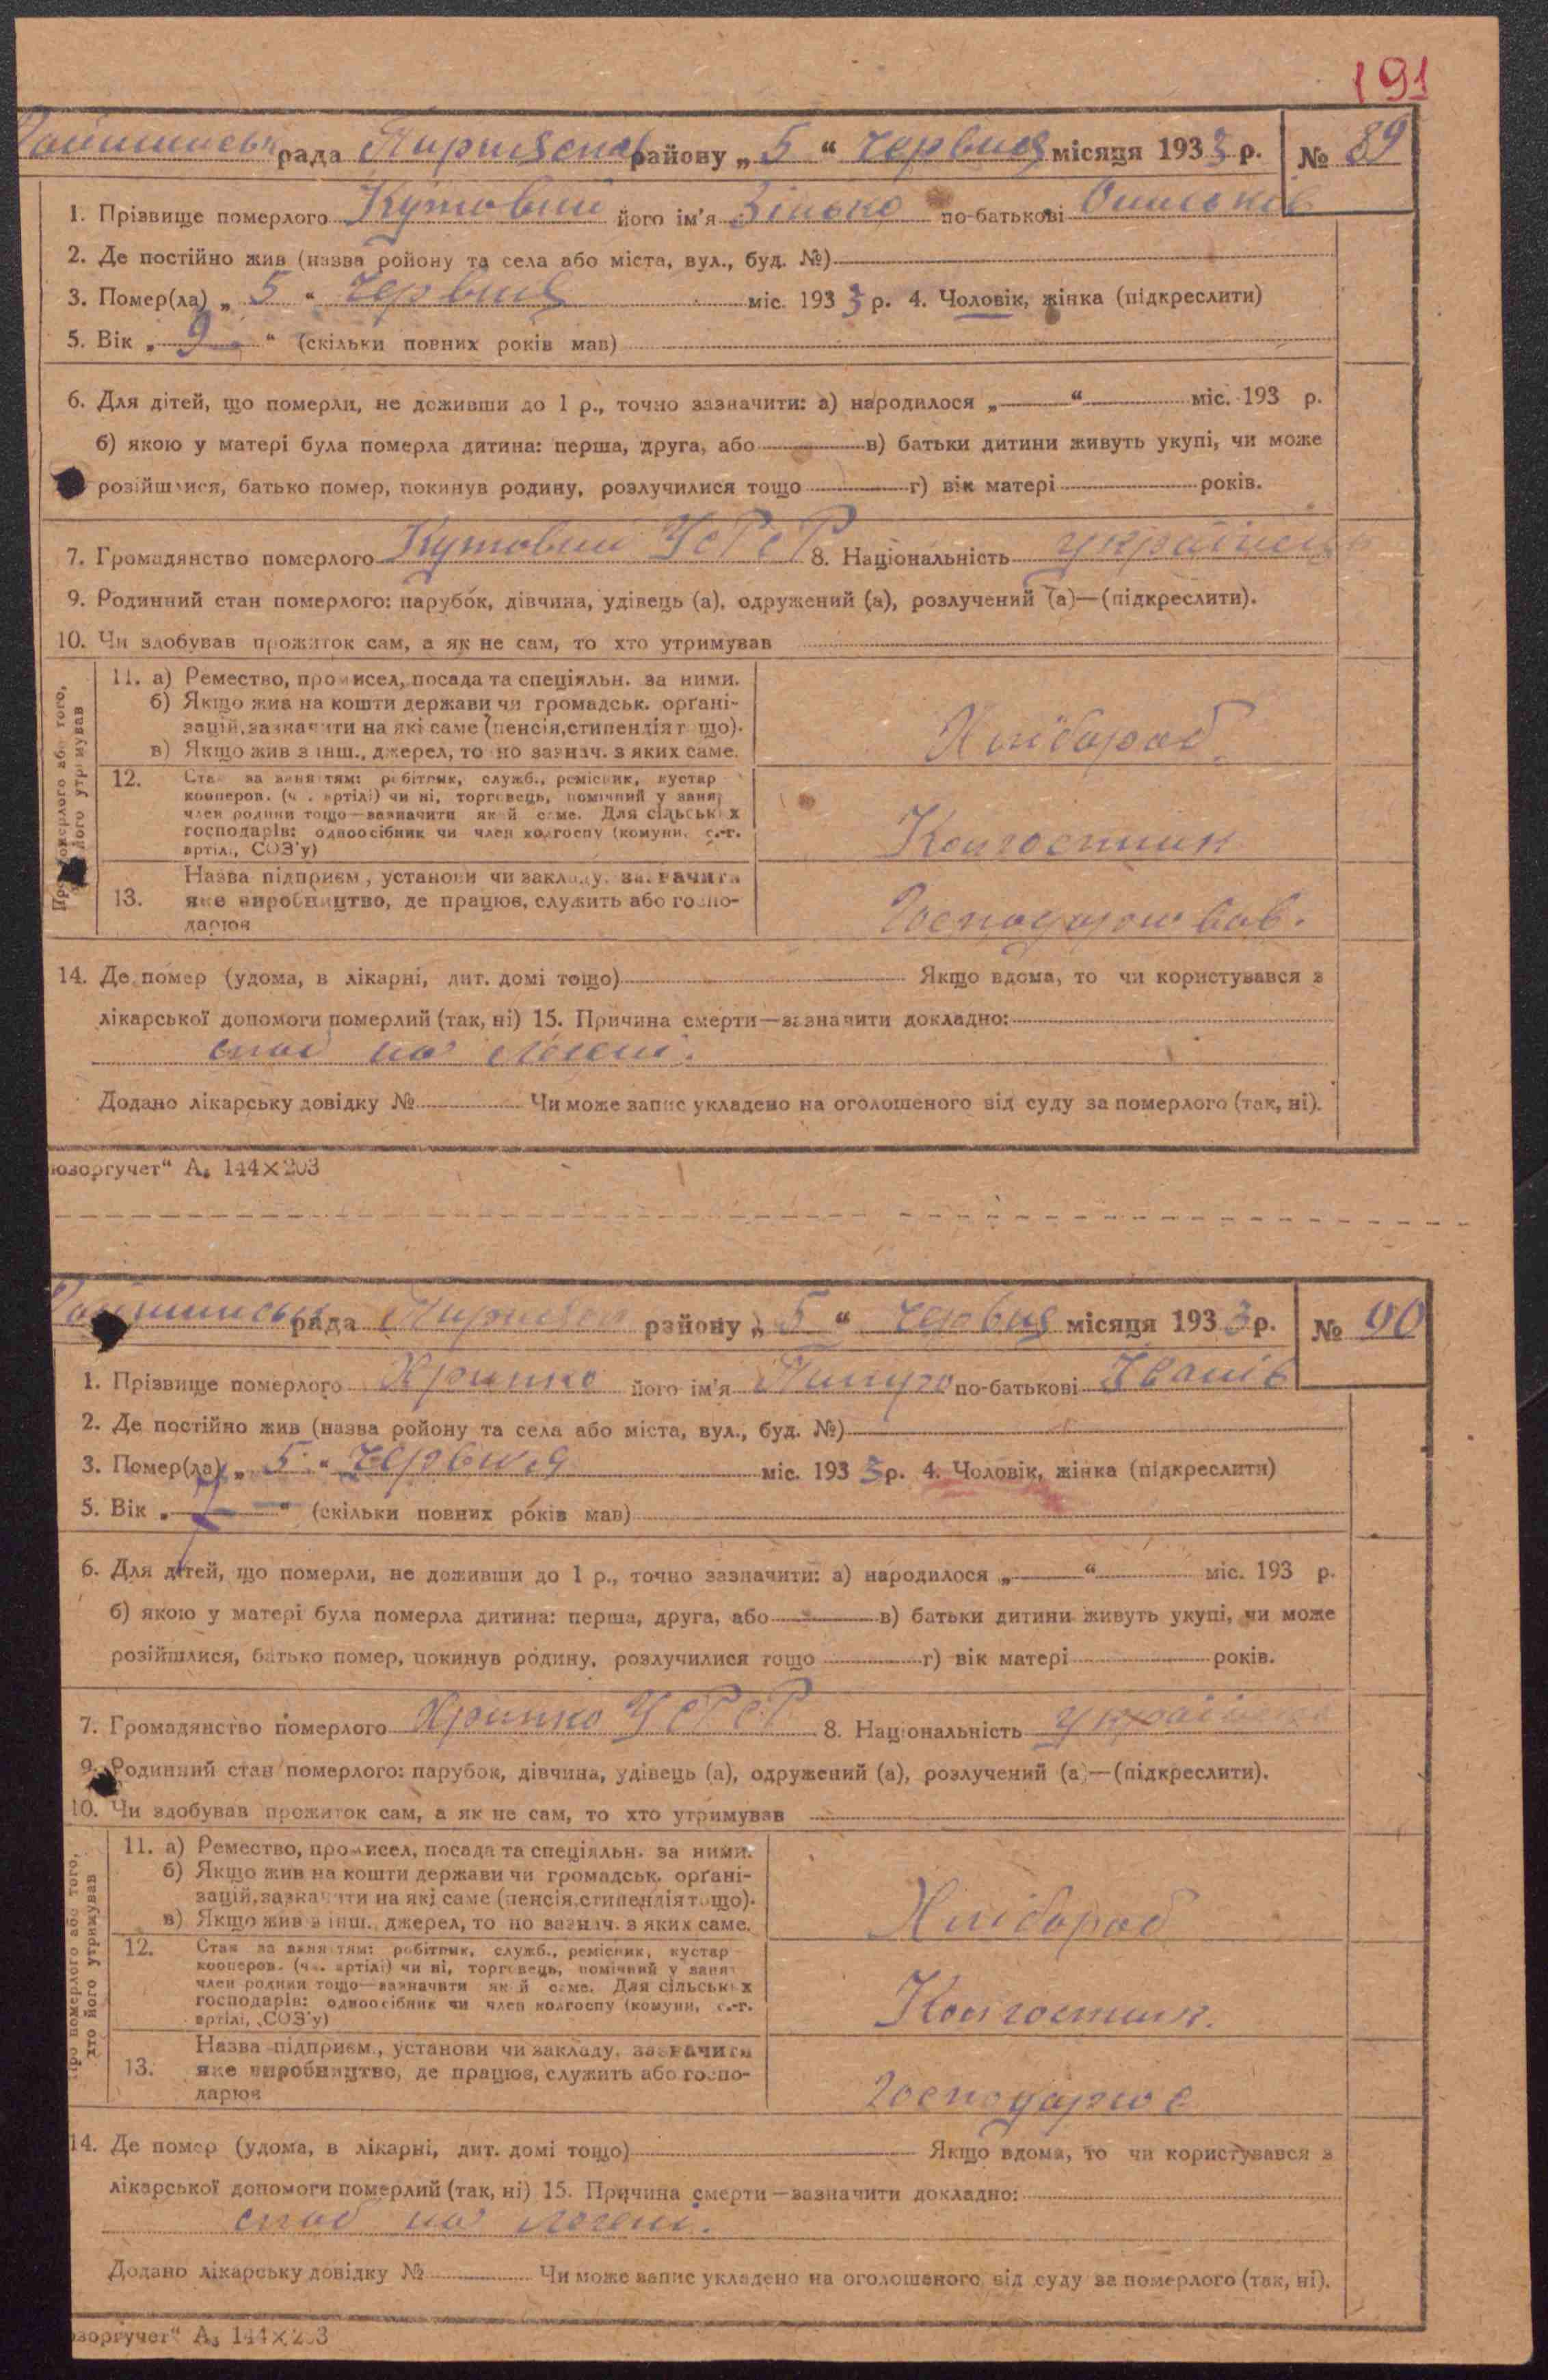 191
рада Пирятенс району „ 5 “ червня місяця 1933 р. № 89
1. Прізвище померлого Кутовий його ім'я Зінько по-батькові
2. Де постійно жив (назва ройону та села або міста, вул., буд. №)
3. Помер(ла) „ 5 “ червня міс. 1933 р. 4. Чоловік, жінка (підкреслити)
5. Вік „ 9 “ (скільки повних років мав)
6. Для дітей, що померли, не доживши до 1 р., точно зазначити: а) народилося „ “ міс. 193 р.
б) якою у матері була померла дитина: перша, друга, або в) батьки дитини живуть укупі, чи може
розійшлися, батько помер, покинув родину, розлучилися тощо г) вік матері років.
7. Громадянство померлого Кутовий УСРСР 8. Національність українець
9. Родинний стан померлого: парубок, дівчина, удівець (а), одружений (а), розлучений (а)—(підкреслити).
10. Чи здобував прожиток сам, а як не сам, то хто утримував
Про померлого або того,
хто його утримував
11. а) Ремество, промисел, посада та спеціяльн. за ними.
б) Якщо жив на кошти держави чи громадськ. орґані-
зацій, зазначити на які саме (пенсія, стипендія тощо).
в) Якщо жив з інш., джерел, точно зазнач. з яких саме.
Хлібороб
12. Стан за заняттям: робітник, служб., ремісник, кустар
кооперов. (чл. артілі) чи ні, торговець, помічний у занят
член родини тощо—зазначити який саме. Для сільських
господарів: одноосібник чи член колгоспу (комуни, с.-г.
артілі, СОЗ'у)
Колгоспник
13. Назва підприєм., установи чи закладу, зазначити
яке виробництво, де працює, служить або госпо-
дарює
Господарював.
14. Де помер (удома, в лікарні, дит. домі тощо) Якщо вдома, то чи користувався з
лікарської допомоги померлий (так, ні) 15. Причина смерти—зазначити докладно:
на
Додано лікарську довідку № Чи може запис укладено на оголошеного від суду за померлого (так, ні).
юзоргучет“ А₅ 144×203
рада району „ 5 “ червня місяця 1933 р. № 90
1. Прізвище померлого Хрипко його ім'я по-батькові Іванів
2. Де постійно жив (назва ройону та села або міста, вул., буд. №)
3. Помер(ла) „ 5 “ червня міс. 1933 р. 4. Чоловік, жінка (підкреслити)
5. Вік „ 7 “ (скільки повних років мав)
6. Для дітей, що померли, не доживши до 1 р., точно зазначити: а) народилося „ “ міс. 193 р.
б) якою у матері була померла дитина: перша, друга, або в) батьки дитини живуть укупі, чи може
розійшлися, батько помер, покинув родину, розлучилися тощо г) вік матері років.
7. Громадянство померлого Хрипко УСРСР 8. Національність
9. Родинний стан померлого: парубок, дівчина, удівець (а), одружений (а), розлучений (а)—(підкреслити).
10. Чи здобував прожиток сам, а як не сам, то хто утримував
Про померлого або того,
хто його утримував
11. а) Ремество, промисел, посада та спеціяльн. за ними.
б) Якщо жив на кошти держави чи громадськ. орґані-
зацій, зазначити на які саме (пенсія, стипендія тощо).
в) Якщо жив з інш., джерел, точно зазнач. з яких саме.
Хлібороб
12. Стан за заняттям: робітник, служб., ремісник, кустар
кооперов. (чл. артілі) чи ні, торговець, помічний у занят
член родини тощо—зазначити який саме. Для сільських
господарів: одноосібник чи член колгоспу (комуни, с.-г.
артілі, СОЗ'у)
Колгоспник.
13. Назва підприєм., установи чи закладу, зазначити
яке виробництво, де працює, служить або госпо-
дарює
Господарює
14. Де помер (удома, в лікарні, дит. домі тощо) Якщо вдома, то чи користувався з
лікарської допомоги померлий (так, ні) 15. Причина смерти—зазначити докладно:
на
Додано лікарську довідку № Чи може запис укладено на оголошеного від суду за померлого (так, ні).
зоргучет“ А₅ 144×203